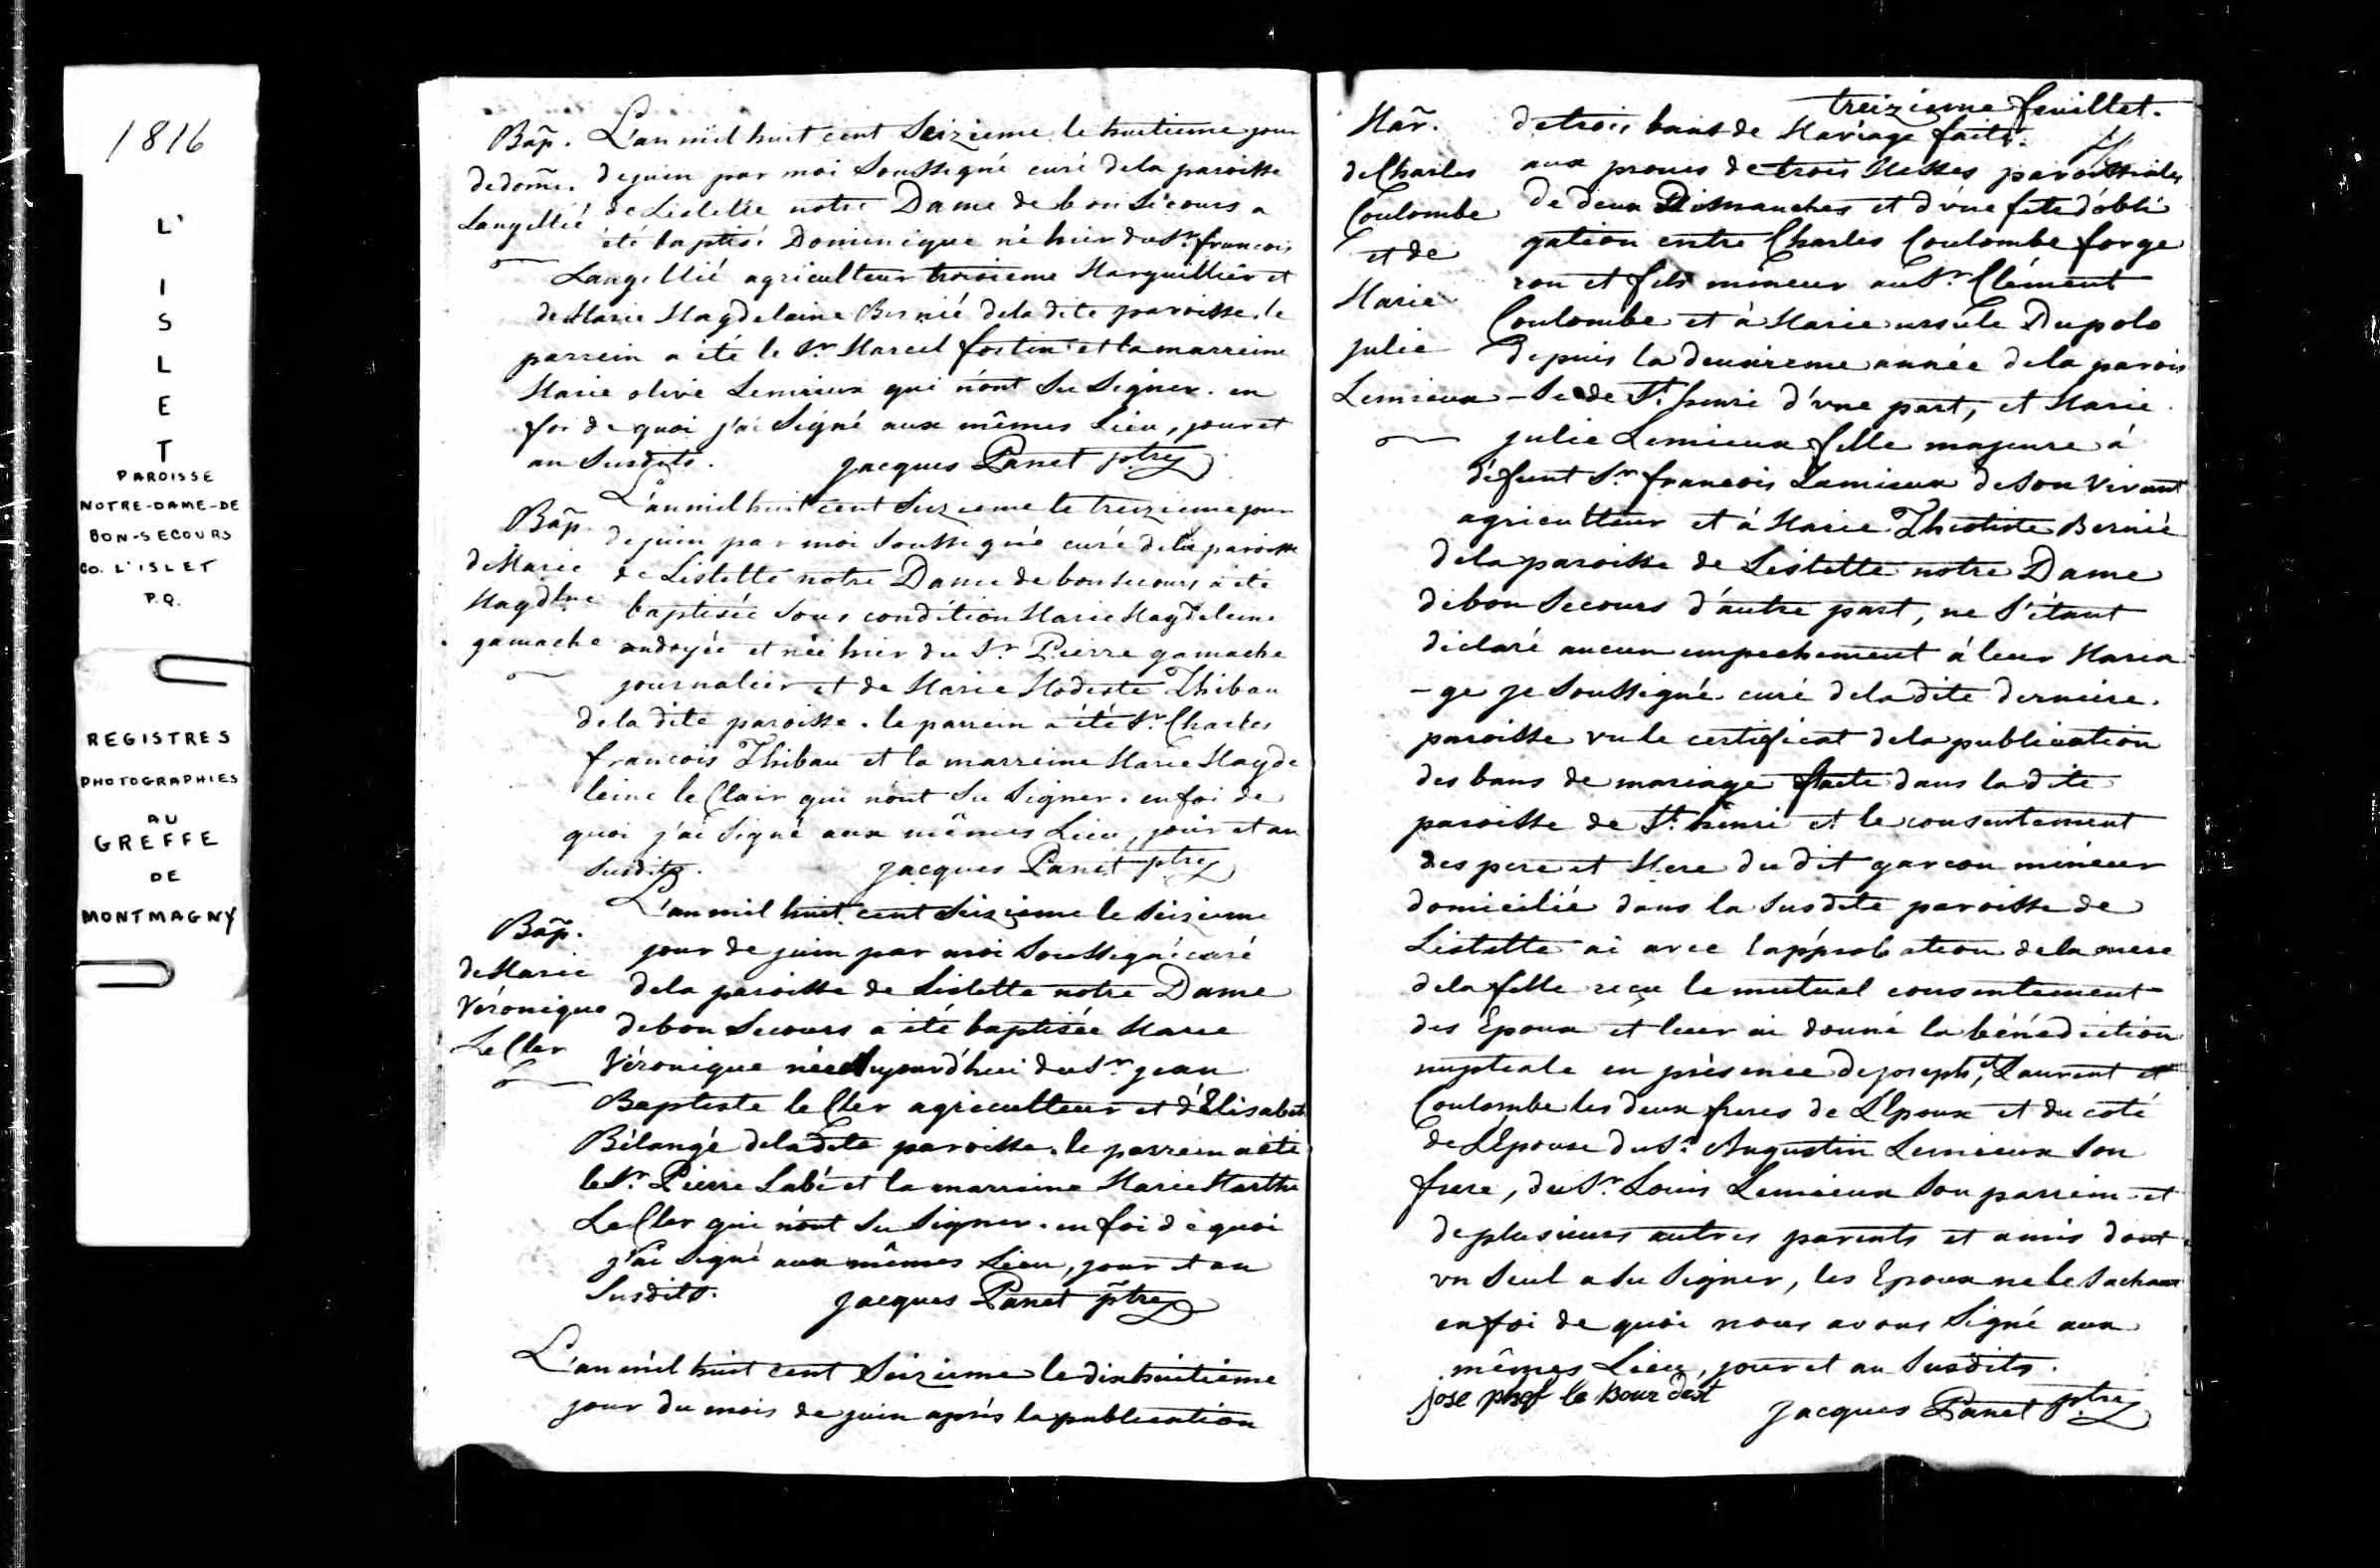 1816
L'
I
S
L
E
T
PAROISSE
NOTRE-DAME-DE
BON-SECOURS
CO. L'ISLET
P.Q.
REGISTRES
PHOTOGRAPHIES
AU
GREFFE
DE
MONTMAGNY
Bap̃. L'an mil huit cent Seizieme le huitieme jour
de dom̃e. de juin par moi Soussigné curé de la paroisse
Langellié de Lislette notre Dame de bon Sécours a
été baptisé Dominique né hier du Sr. francois
Langellié agriculteur troisieme Marguillier et
de Marie Magdelaine Bernié de la dite paroisse. le
parrein a été le Sr. Marcel fortin et la marreine
Marie olive Lemieux qui n'ont Su Signer. en
foi de quoi j'ai Signé aux mêmes Lieu, jour et
an Susdits. jacques Panet ptre
L'an mil huit cent Seizieme le treizieme jour
Bap̃. de juin par moi Soussigné curé de la paroisse
de Marie de Lislette notre Dame de bon Secours a été
Magdlne baptisée Sous condition Marie Magdeleine
gamache ondoyée et née hier du Sr. Pierre gamache
journalier et de Marie Modeste Thibau
de la dite paroisse. le parrein a été Sr. Charles
francois Thibau et la marreine Marie Magde
leine le Clair qui n'ont Su Signer. en foi de
quoi j'ai Signé aux mêmes Lieu, jour et an
Susdits. jacques Panet ptre
L'an mil huit cent Seizieme le Seizieme
Bap̃. jour de juin par moi Soussigné curé
de Marie de la paroisse de Lislette notre Dame
Véronique de bon Secours a été baptisée Marie
Le Cler Véronique née Aujourd'hui du Sr. jean
Baptiste le Cler agriculteur et d'Elisabeth
Bélangé de la dite paroisse. le parrein a été
le Sr. Pierre Labé et la marreine Marie Marthe
Le Cler qui n'ont Su Signer. en foi de quoi
j'ai Signé aux mêmes Lieu, jour et an
Susdits. jacques Panet ptre
L'an mil huit cent Seizieme le dix huitième
jour du mois de juin après la publication
treizieme feuillet.
Mar̃. de trois bans de Mariage faite
de Charles aux prones de trois Messes paroissiales
Coulombe de deux Dimanches et d'une fete d'obli
et de gation entre Charles Coulombe forge
Marie ron et fils mineur au Sr. Clément
julie Coulombe et à Marie ursule Dupolo
Lemieux depuis la deuxieme année de la parois
-Se de St. henri d'une part, et Marie
julie Lemieux fille majeure à
défunt Sr. francois Lemieux de Son Vivant
agriculteur et à Marie Théotiste Bernié
de la paroisse de Leslette notre Dame
de bon Secours d'autre part, ne S'étant
déclaré aucun empechement à leur Maria
-ge je Soussigné curé de la dite derniere
paroisse vu le certificat de la publication
des bans de mariage faite dans la dite
paroisse de St. henri et le consentement
des pere et Mere du dit garcon mineur
domicilié dans la Susdite paroisse de
Lislette ai avec l'approbation de la mere
de la fille reçu le mutuel consentement
des Epoux et leur ai donné la bénédiction
nuptiale en présence de joseph, et Laurent
Coulombe les deux freres de L'Epoux et du coté
de L'Epouse du Sr. Augustin Lemieux Son
frere, du Sr. Louis Lemieux Son parrein et
de plusieurs autres parents et amis dont
un Seul a Su Signer, les Epoux ne le Sachant
en foi de quoi nous avons Signé aux
mêmes Lieu, jour et an Susdits.
jose phef le Bour dest jacques Panet ptre